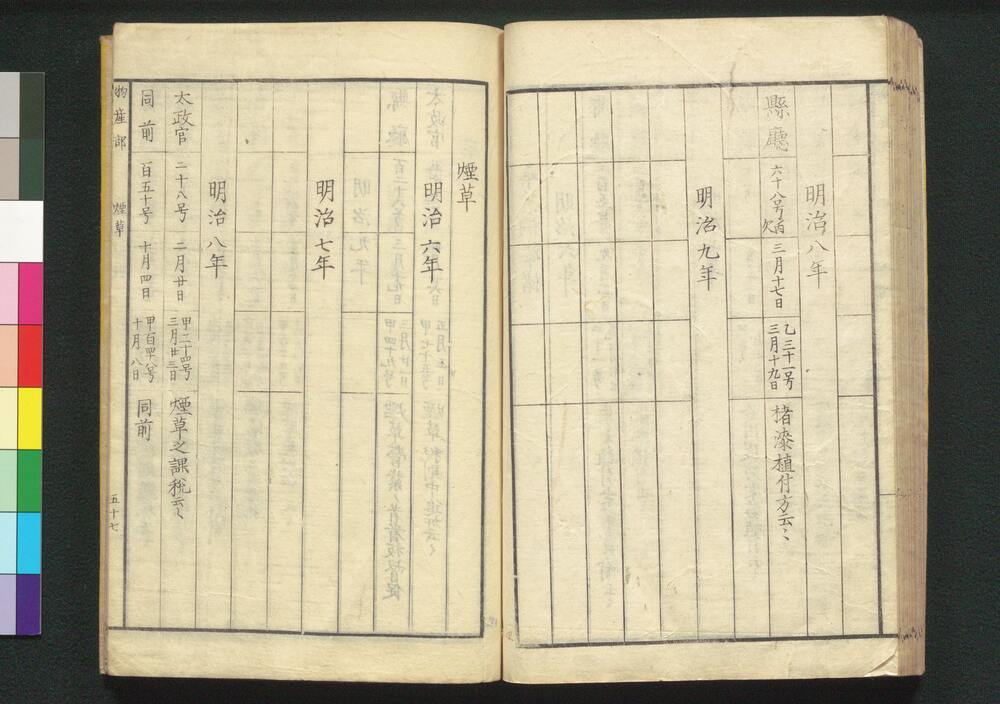 明治八年
縣廳
六十八号ノ内
欠
三月十七日
乙三十一号
三月十九日
楮漆植付方云〻
明治九年
煙草
明治六年
明治七年
明治八年
太政官
二十八号
二月廿日
甲二十四号
三月廿三日
煙草之課税云〻
同前
百五十号
十月四日
甲百四十八号
十月八日
同前
物産部
煙草
五十七